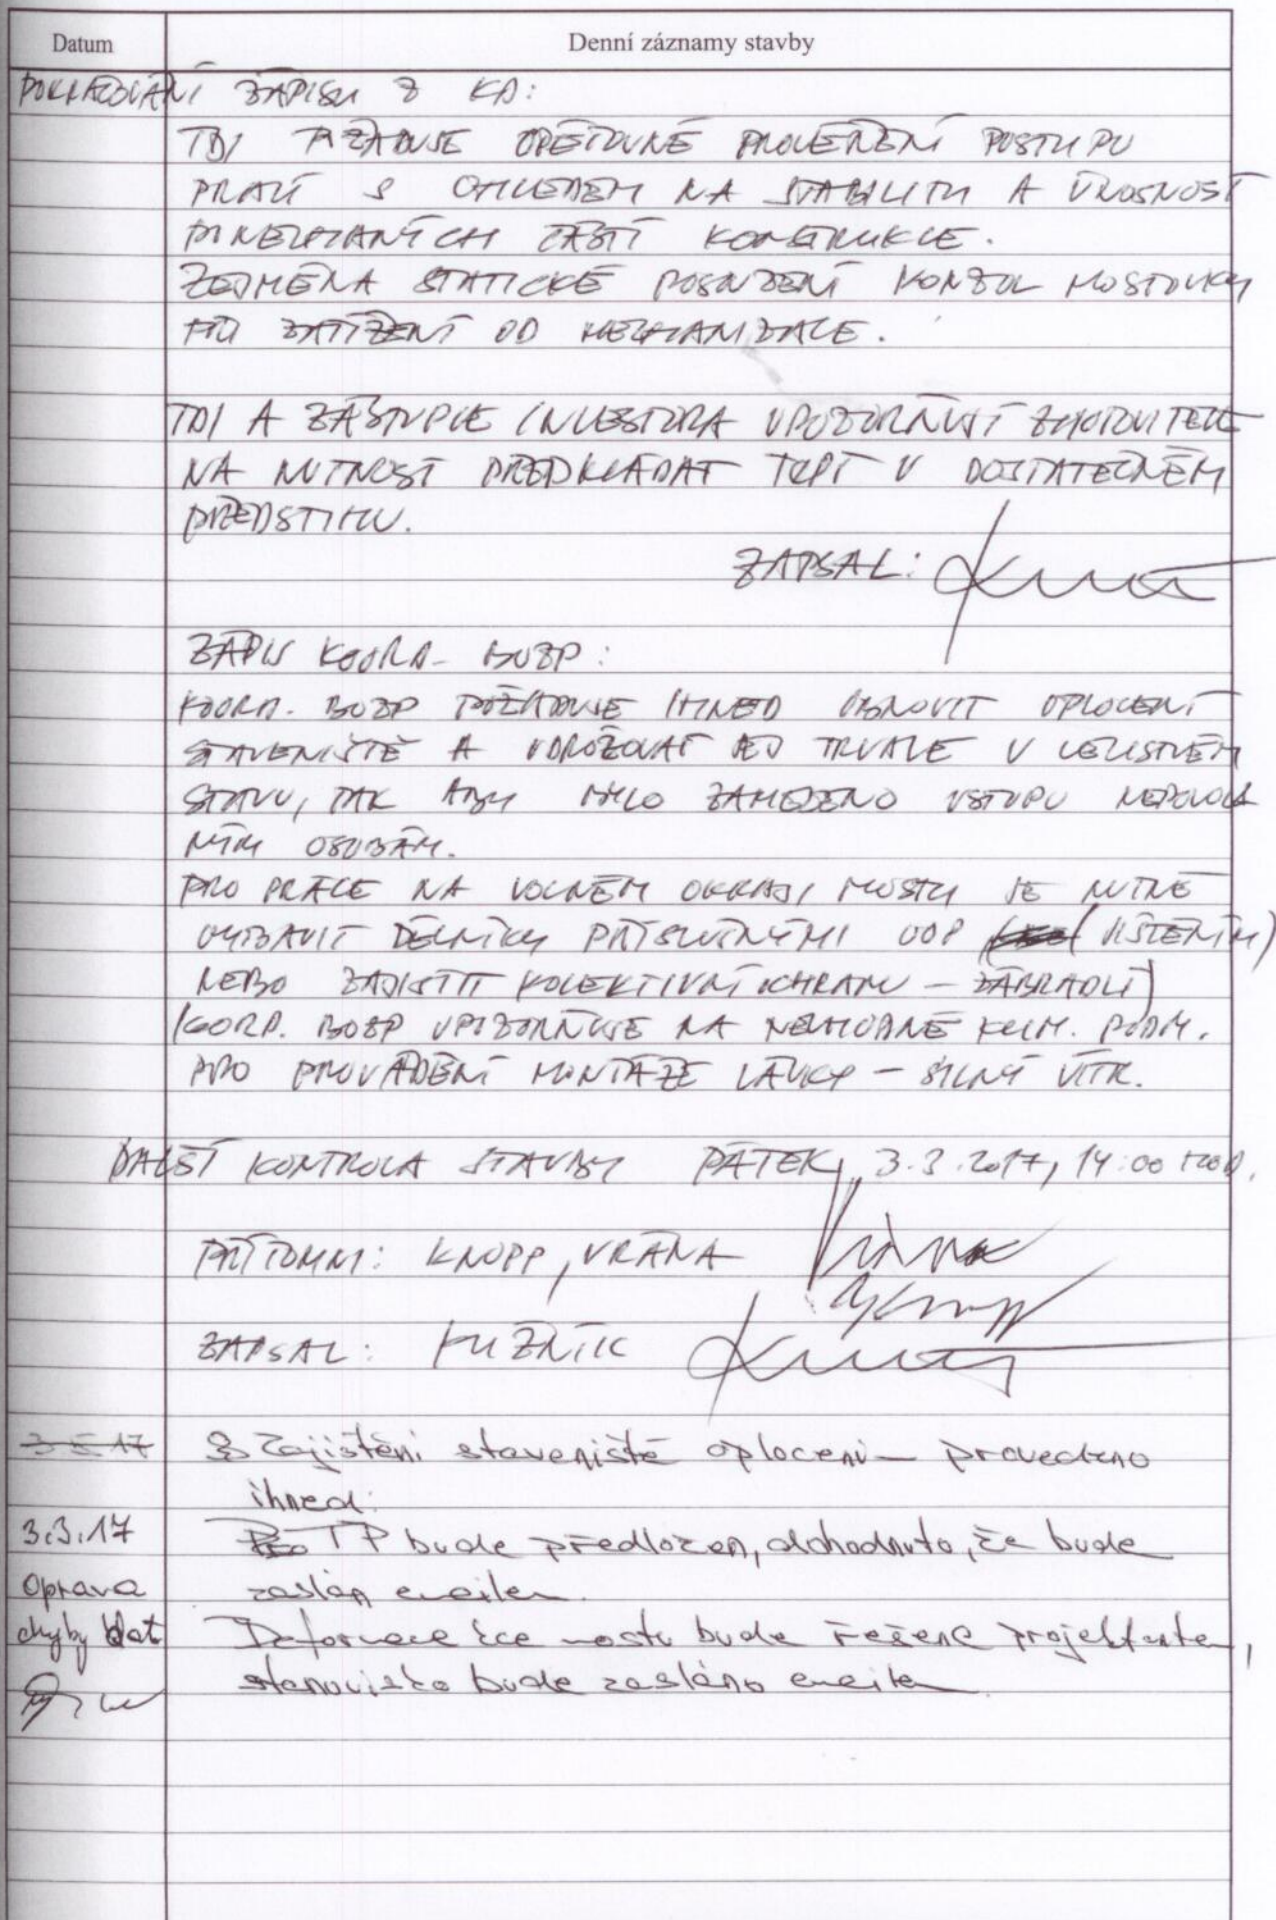 Datum Denní záznamy stavby
POKRAČOVÁNÍ ZÁPISU Z KD:
TDI POŽADUJE OPĚTOVNÉ PROVĚŘENÍ POSTUPU
PRACÍ S OHLEDEM NA STABILITU A ÚNOSNOST
PONECHANÝCH ČÁSTÍ KONSTRUKCE.
ZEJMÉNA STATICKÉ POSOUZENÍ KONZOL MOSTOVKY
PŘI ZATÍŽENÍ OD MECHANIZACE.
TDI A ZÁSTUPCE INVESTORA UPOZORŇUJÍ ZHOTOVITELE
NA NUTNOST PŘEDKLÁDAT TEPŘ V DOSTATEČNÉM
PŘEDSTIHU.
ZAPSAL:
ZÁPIS KOORD. BOZP:
KOORD. BOZP POŽADUJE IHNED OBNOVIT OPLOCENÍ
STAVENIŠTĚ A UDRŽOVAT JEJ TRVALE V CELISTVÉM
STAVU, TAK ABY BYLO ZAMEZENO VSTUPU NEPOVOLA
NÝM OSOBÁM.
PRO PRÁCE NA VOLNÉM OKRAJI MOSTU JE NUTNÉ
VYBAVIT DĚLNÍKY PŘÍSLUŠNÝMI OOP (JIŠTĚNÍM)
NEBO ZAJISTIT KOLEKTIVNÍ OCHRANU – ZÁBRADLÍ)
KORD. BOZP UPOZORŇUJE NA NEVHODNÉ KLIM. PODM.
PRO PROVÁDĚNÍ MONTÁŽE LÁVKY – SILNÝ VÍTR.
DALŠÍ KONTROLA STAVBY PÁTEK, 3.3.2017, 14:00 HOD.
PŘÍTOMNI: KNOPP, VRÁNA
ZAPSAL: KUŽNÍK
Zajištění staveniště oplocení – provedeno
ihned.
3.3.17 TP bude předložen, dohodnuto, že bude
Oprava zaslán emailem
chyby dat Deformace bude řešena projektantem,
stanovisko bude zasláno emailem